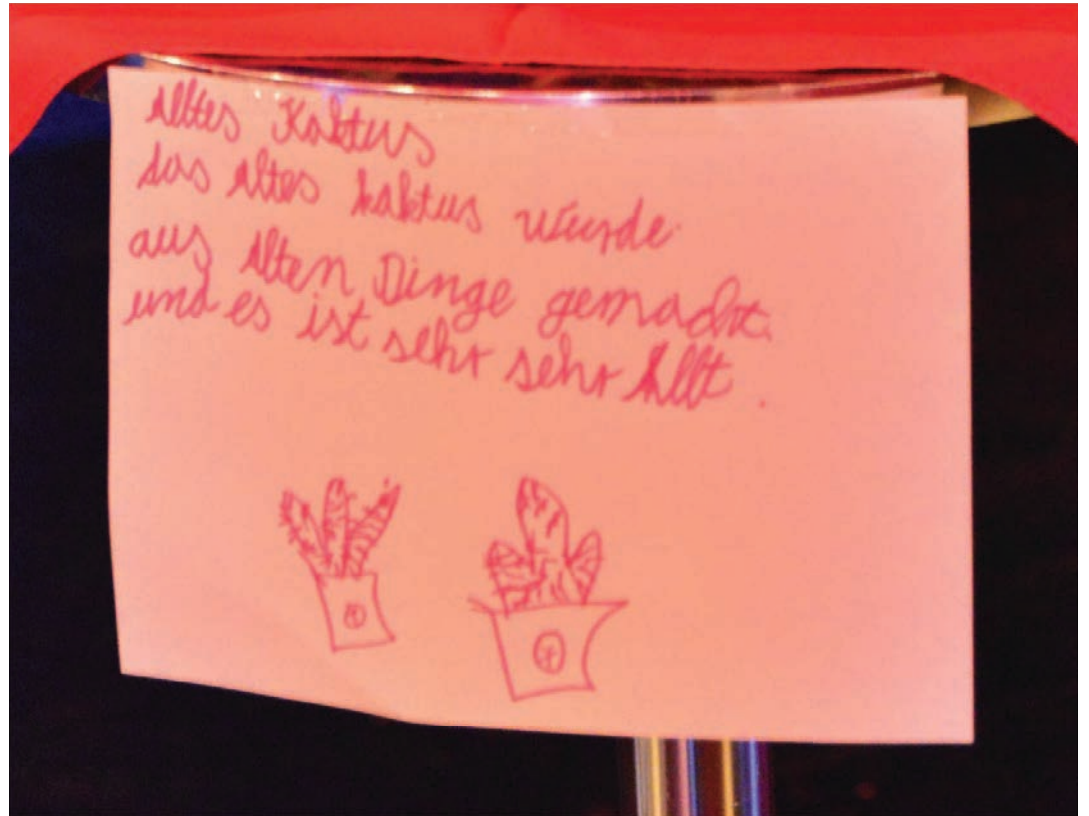 Alltes Kaktus
das altes kaktus wurde
aus alten Dinge gemacht.
und es ist sehr sehr Allt.